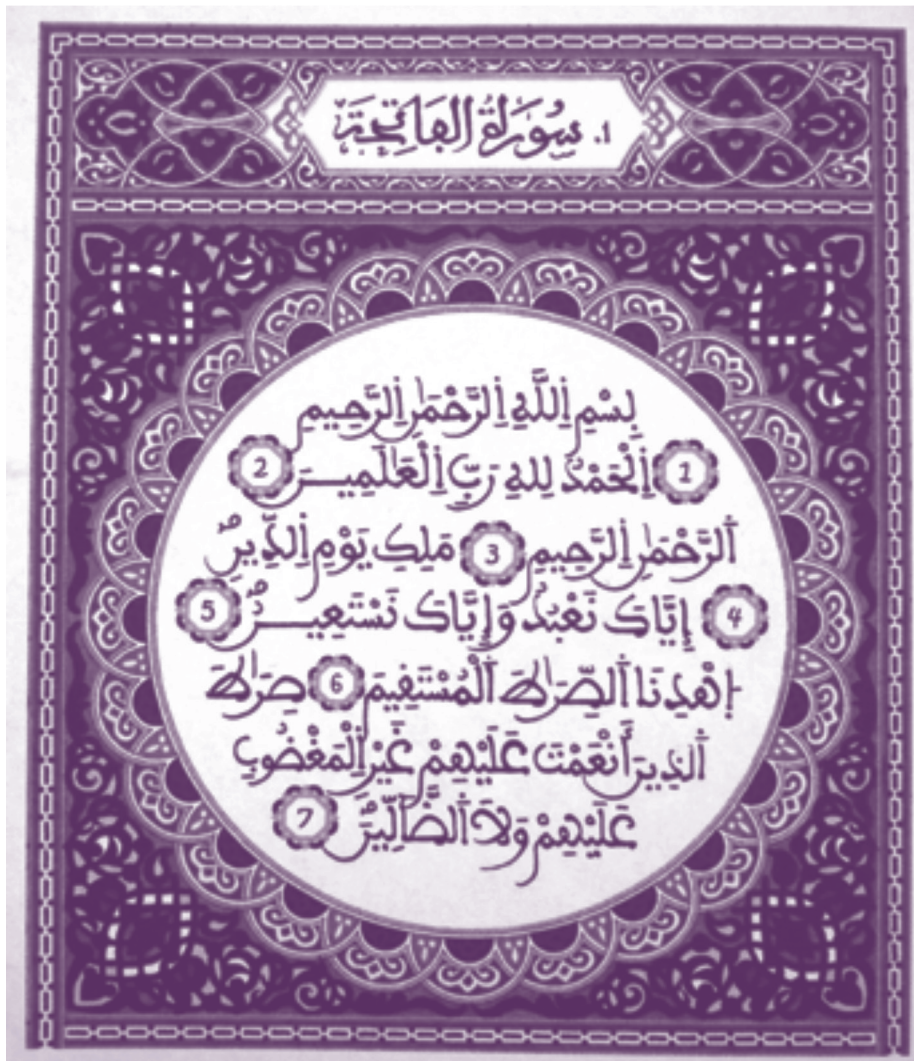 1. سُورَةُ الفَاتِحَة
بِسْمِ اِللَّهِ اِلرَّحْمَٰنِ اِلرَّحِيمِ
1 اِلْحَمْدُ لِلهِ رَبِّ اِلْعَٰلَمِينَ 2
اَلرَّحْمَٰنِ اِلرَّحِيمِ 3 مَلِكِ يَوْمِ اِلدِّينِ
4 إِيَّاكَ نَعْبُدُ وَإِيَّاكَ نَسْتَعِينُ 5
اِهْدِنَا اَلصِّرَٰطَ اَلْمُسْتَقِيمَ 6 صِرَٰطَ
اَلذِينَ أَنْعَمْتَ عَلَيْهِمْ غَيْرِ اِلْمَغْضُوبِ
عَلَيْهِمْ وَلَا اَلضَّالِّينَ 7